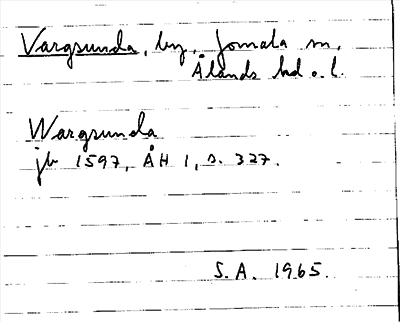 Vargsunda, by, Jomala sn,
Ålands hd o. l.
Wargsunda
jb 1597, ÅH 1, s. 327.
S. A. 1965.